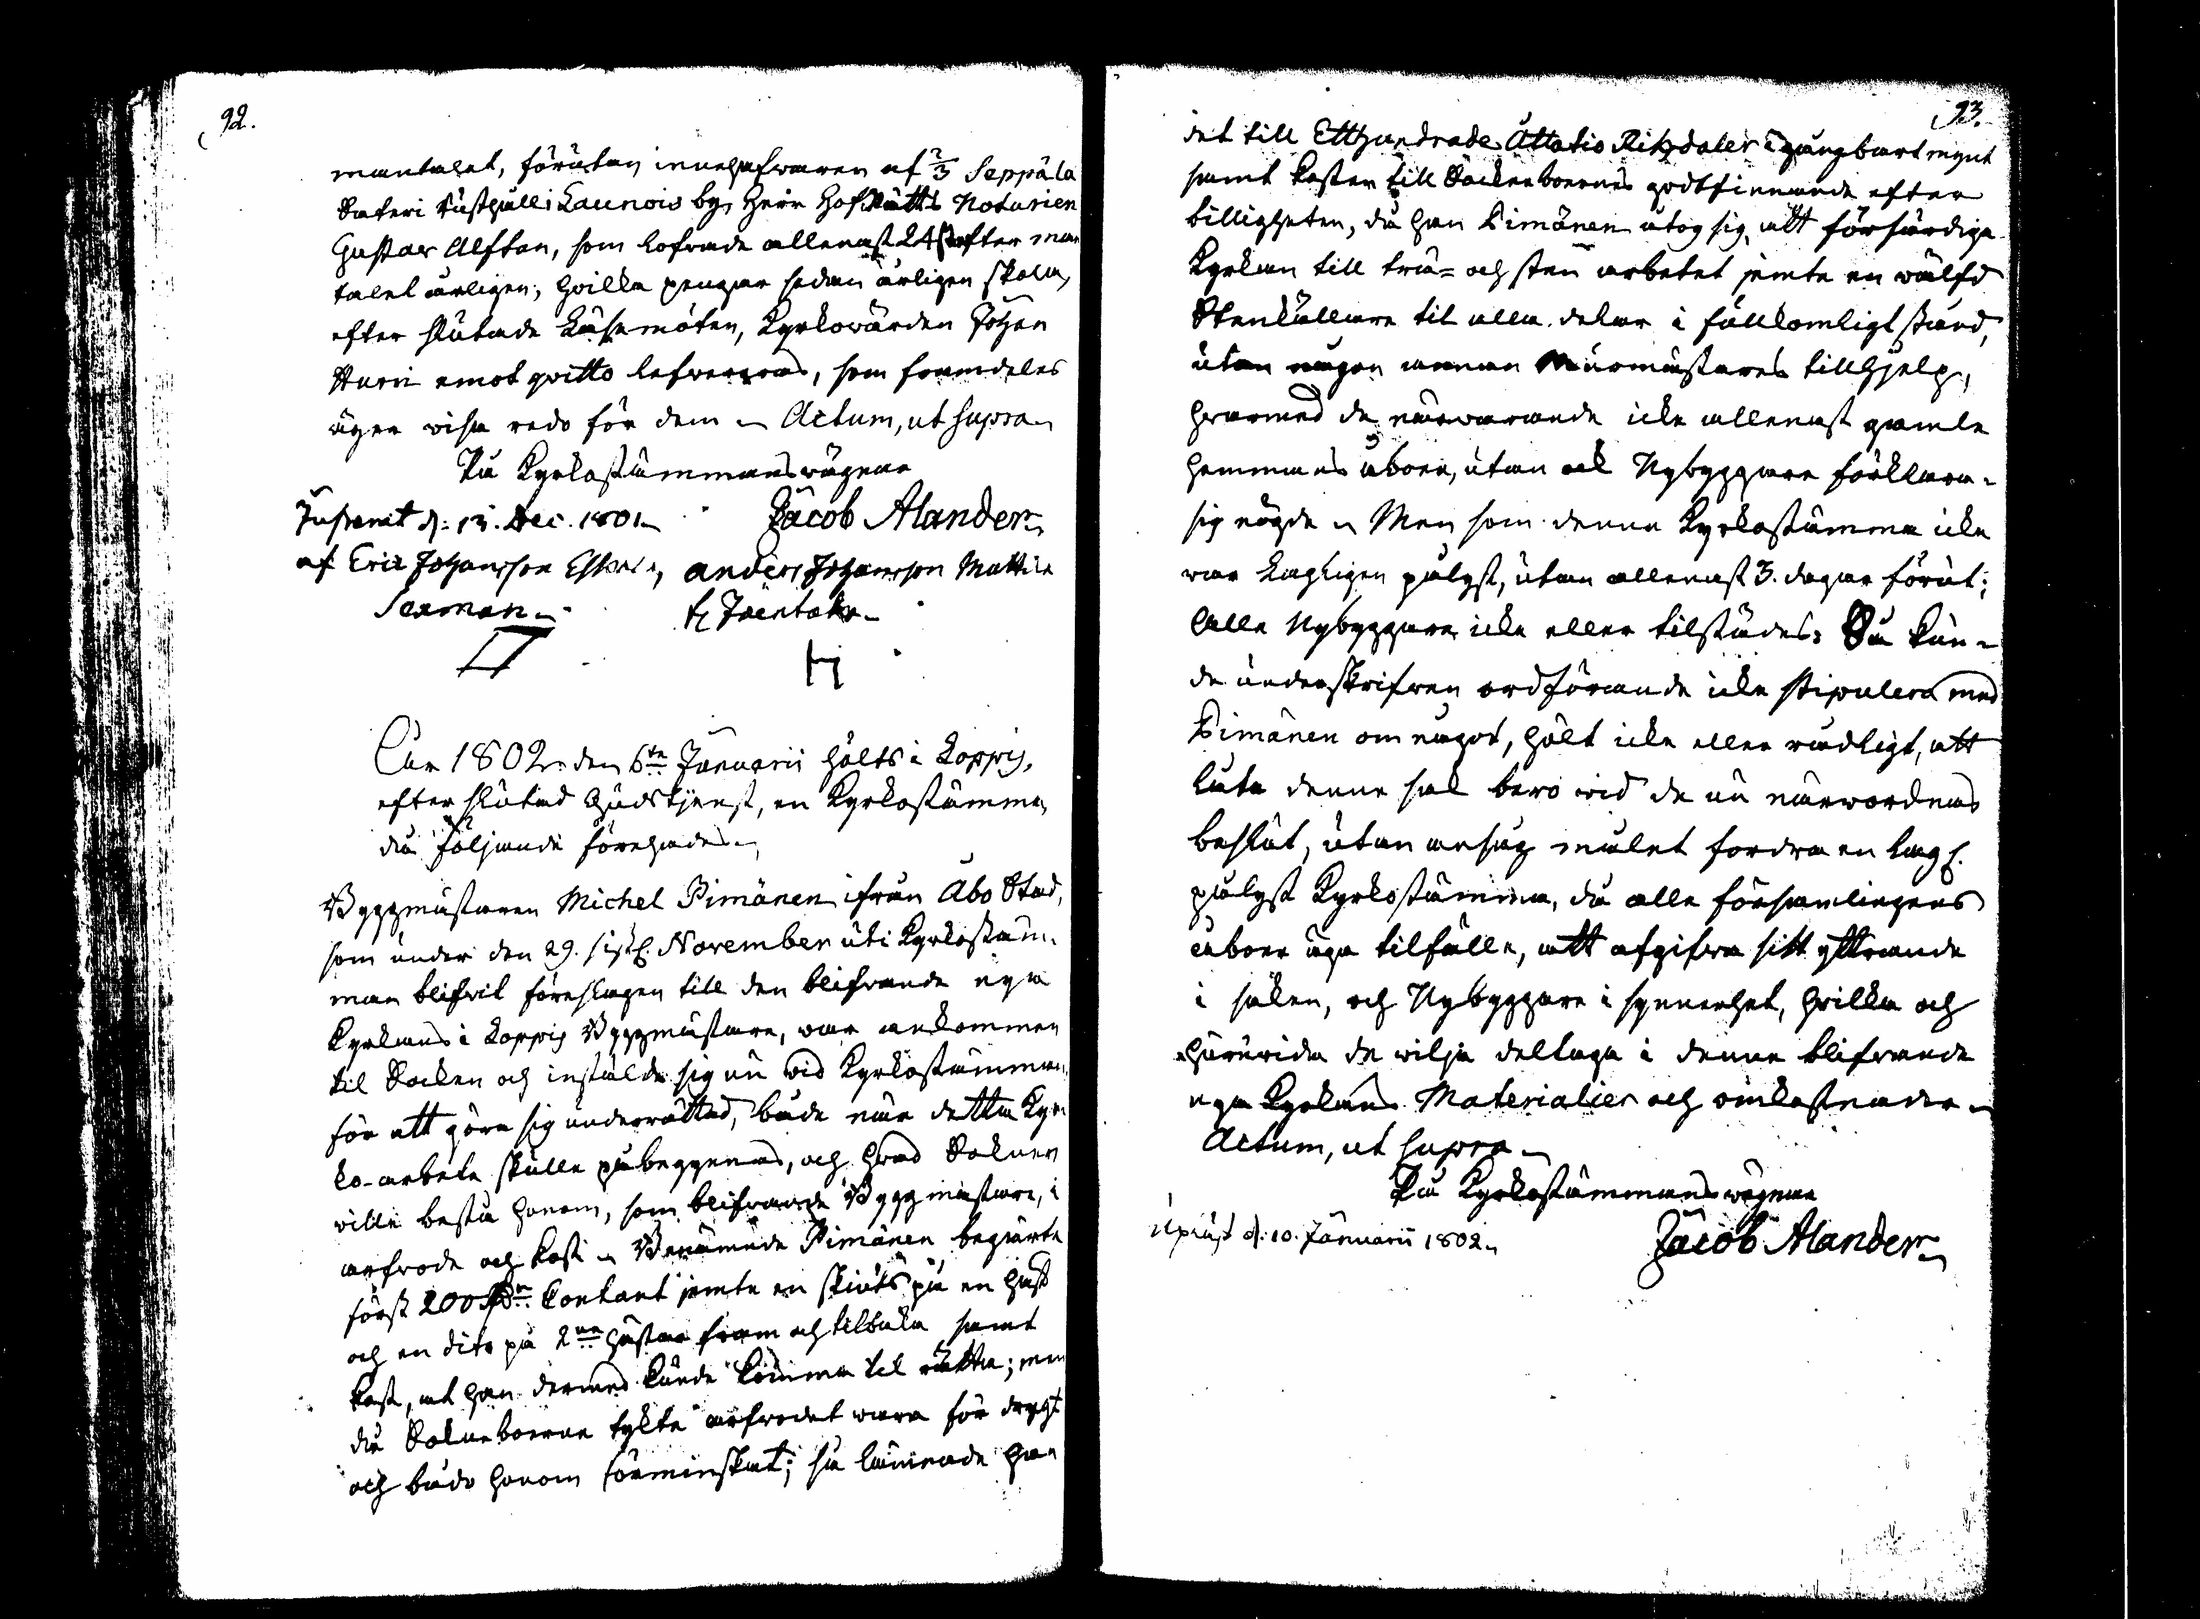 92.
mantalet, förutan innehafwaren af 2/3 Seppälä
Säteri Rusthåll i Launois by, Herr HofRätts Notarien
Gustav Alftan, som lofwade allenast 24 ß efter man
talet årligen; hvilka pengar sedan årligen skola,
efter slutade Läsemöten, Kyrkowärden Johan
Sturi emot qvitto lefwereras, som framdeles
äger wisa redo för dem. Actum, ut supra
På Kyrkostämmans wägnar
Justerat d. 13. Dec. 1801. Jacob Alander.
af Eric Johansson Eskola, Anders Johansson Mattila
Sexman. fr Joentaka.
H
Åhr 1802. den 6te Januarii hölts i Koppis,
efter slutad Gudstjenst, en Kyrkostämma,
då följande förehades.
Byggmästaren Michel Pimänen ifrån Åbo Stad,
som under den 29. sistl. November uti Kyrkostäm-
man blifvit föreslagen till den blifwande nya
Kyrkans i Koppis Byggmästare, war ankommen
til Socken och instälde sig nu wid Kyrkostämman,
för att göra sig underrättad, både när detta Kyr-
ko-arbete skulle påbegynnas, och hwad Sokner
wille bestå honom, som blifwande Byggmästare, i
arfwode och kost. Benämnde Pimänen begärte
först 200 Rdr Contant jemte en skiuts på en häst
och en dito på 2ne hästar fram och tilbaka samt
kost, at han dermed kunde komma til rätta; men
då Sokneboerne tykte arfwodet wara för drygt
och bådo honom förminskat; så lämnade han
93.
det till Etthundrade Åttatio Riksdaler i gångbart mynt
samt kosten till Sockneboernes godtfinnande efter
billigheten, då han Pimänen utog sig, att förfärdiga
Kyrkan till trä- och sten arbetet jemte en wälfd
Stenkällare til alla delar i fullkomligt stånd,
utan någon annan Murmästares tillhjelp,
hwarmed de närwarande icke allenast gamle
hemmans åboer, utan ock Nybyggare förklara-
sig nögde. Men som denna Kyrkostämma icke
war lagligen pålyst, utan allenast 3. dagar förut;
Alla Nybyggare icke eller tilstädes: Så kun-
de underskrifwen ordförande icke stipulera med
Pimänen om något, hölt icke eller rådligt, att
låta denna sak bero wid de nu närwordenas
beslut, utan ansåg målet fordra en lagl.
pålyst Kyrkostämma, då alla församlingens
åboer äga tilfälle, att afgifwa sitt yttrande
i saken, och Nybyggare i synnerhet, hvilka och
huruvida de wilja deltaga i denna blifwande
nya Kyrkans Materialier och omkostnader.
Actum, ut supra.
På Kyrkostämmans wägnar
Upläst d. 10. Januarii 1802. Jacob Alander.